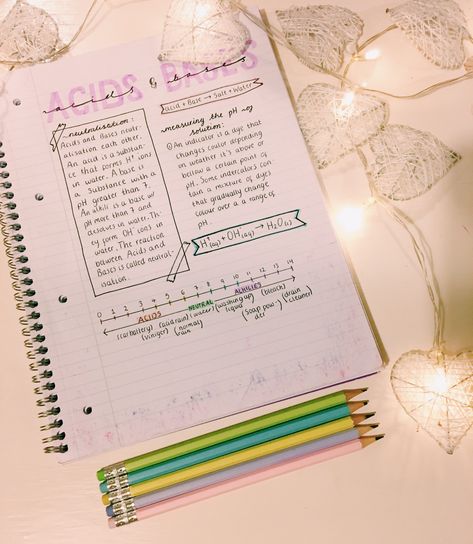 ACIDS & BASES
acids & bases
acid + Base → Salt + Water
neutralisation :
Acids and Bases neutr-
alisation each other.
An acid is a substan-
ce that forms H⁺ ions
in water. A base is
a substance with a
pH greater than 7.
An alkili is a base w/
pH more than 7 and
dissolves in water. The-
y form OH⁻ ions in
water. The reaction
between Acids and
Bases is called neutral-
isation.
measuring the pH of
solution :
An indicator is a dye that
changes could depending
on weather it's above or
below a certain point of
pH. Some indicators con-
tain a mixture of dyes
that gradually change
colour over a a range of
pH.
H⁺(aq) + OH⁻(aq) → H₂O(l)
0 1 2 3 4 5 6 7 8 9 10 11 12 13 14
ACIDS NEUTRAL ALKILIES
(car battery) (acid rain) (water) (washing up liquid) (bleach) (drain cleaner)
(viniger) (normal rain) (Soap pow-der)